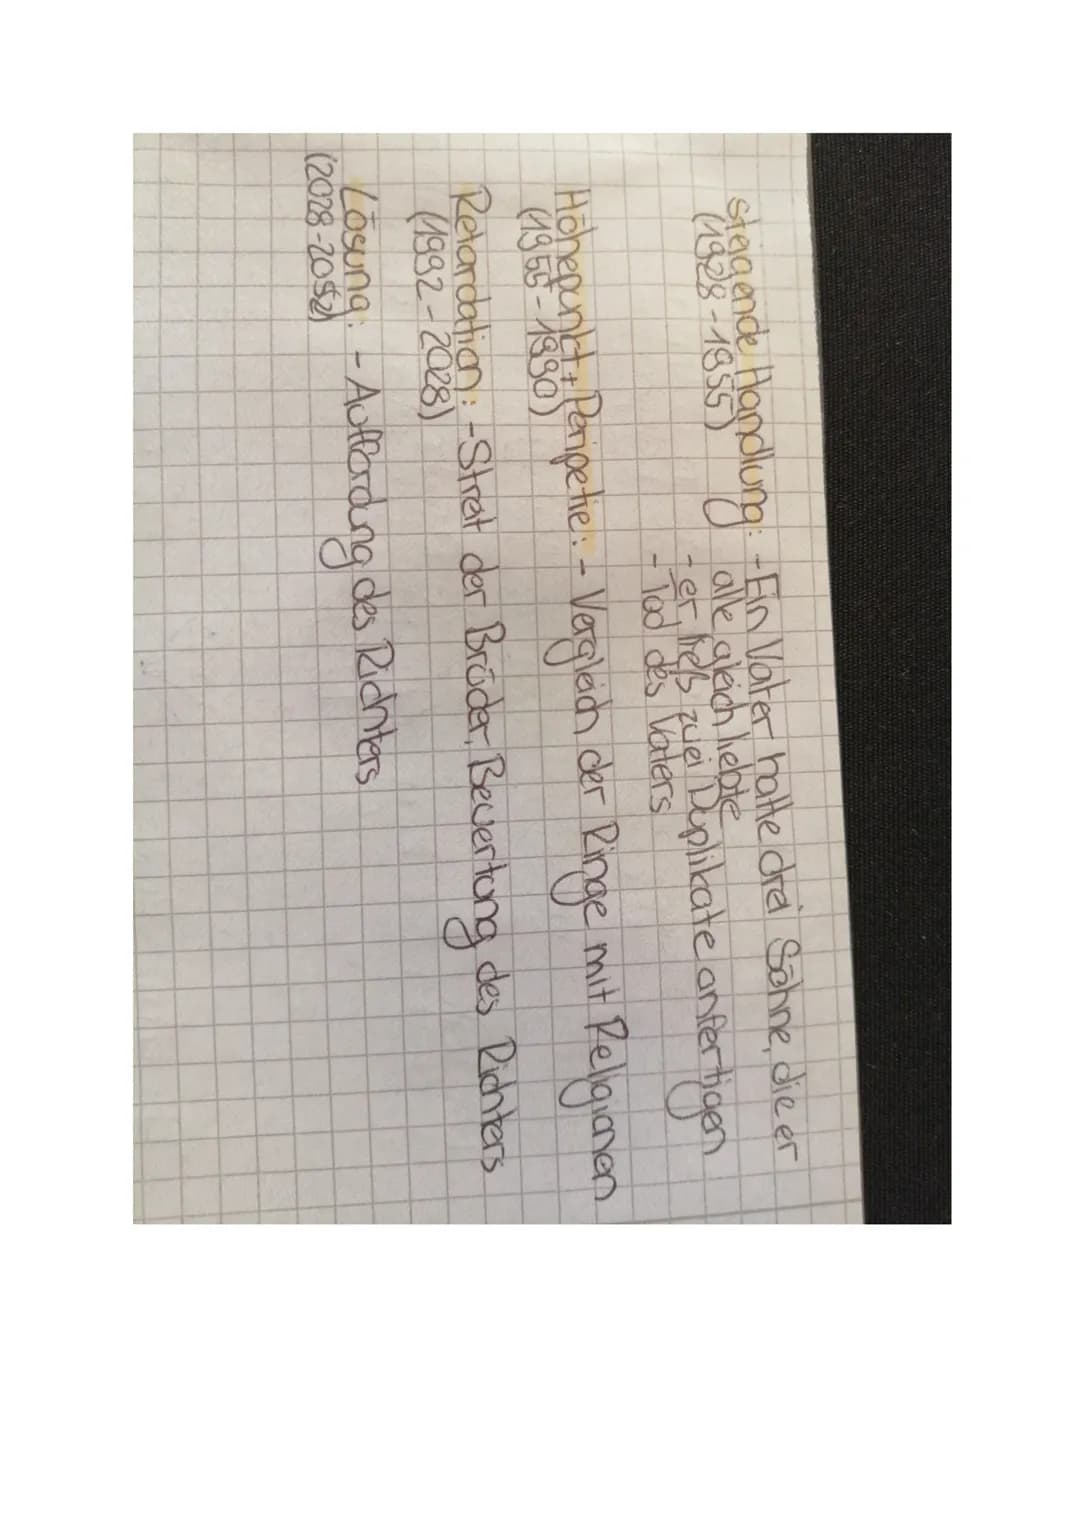 steigende Handlung: - Ein Vater hatte drei Söhne, die er
(1928 - 1955) alle gleich liebte
- er ließ zwei Duplikate anfertigen
- Tod des Vaters
Höhepunkt + Peripetie: - Vergleich der Ringe mit Religionen
(1955 - 1990)
Retardation: - Streit der Brüder, Bewertung des Richters
(1992 - 2028)
Lösung: - Auffordung des Richters
(2028 - 2052)